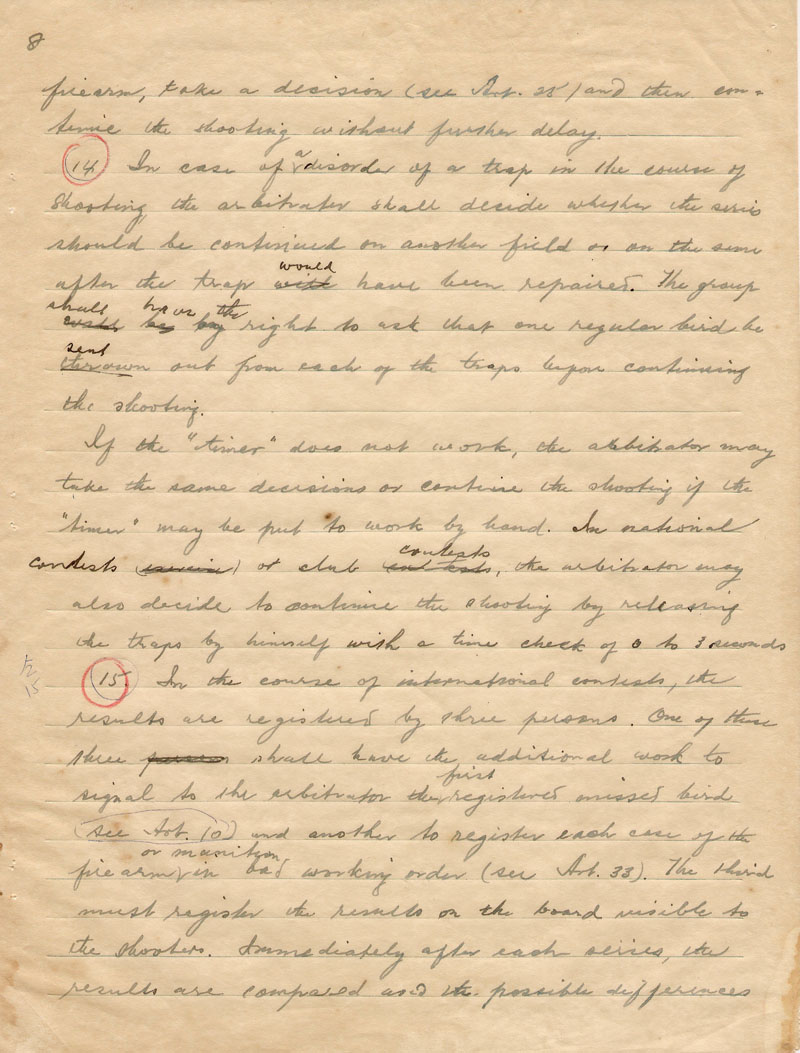 8
firearm, take a decision (see Art. 25) and then con-
tinue the shooting without further delay.
14 In case of a disorder of a trap in the course of
shooting the arbitrator shall decide whether the series
should be continued on another field or on the same
would
after the trap will have been repaired. The group
shall have the
by right to ask that one regular bird be
sent
thrown out from each of the traps before continuing
the shooting.
If the "timer" does not work, the arbitrator may
take the same decisions or continue the shooting if the
"timer" may be put to work by hand. In national
contests
contests or club contests, the arbitrator may
also decide to continue the shooting by releasing
the traps by himself with a time check of 0 to 3 seconds
15 In the course of international contests, the
results are registered by three persons. One of these
three persons shall have the additional work to
first
signal to the arbitrator the registered missed bird
(see Art. 10) and another to register each case of the
or munition
firearm in bad working order (see Art. 33). The third
must register the results on the board visible to
the shooters. Immediately after each series, the
results are compared and the possible differences